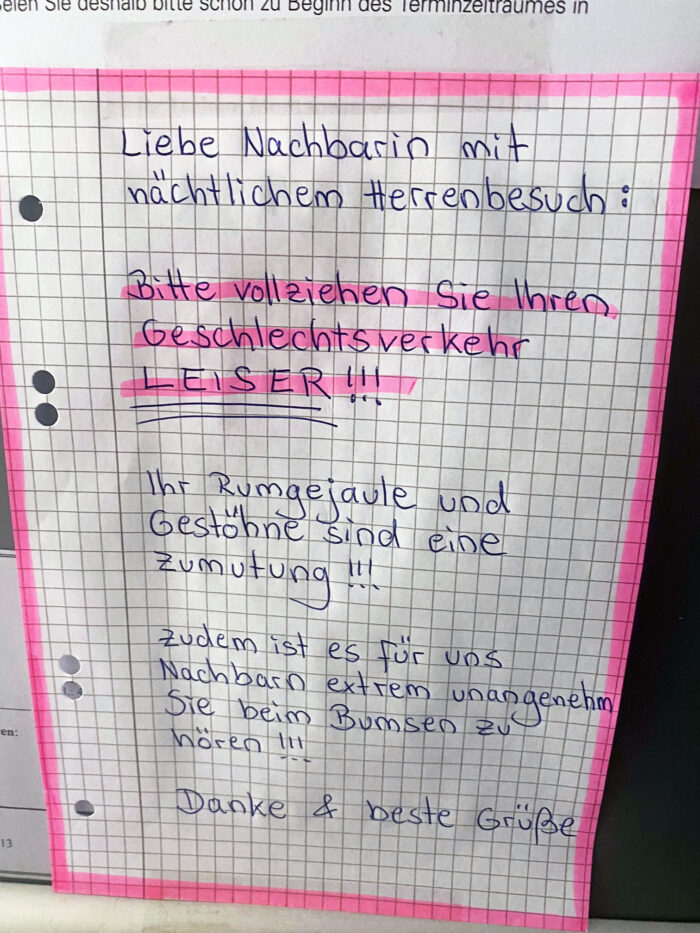 seien Sie deshalb bitte schon zu Beginn des Terminzeitraumes in
Liebe Nachbarin mit
nächtlichem Herrenbesuch:
Bitte vollziehen Sie Ihren
Geschlechtsverkehr
LEISER !!!
Ihr Rumgejaule und
Gestöhne sind eine
Zumutung !!!
Zudem ist es für uns
Nachbarn extrem unangenehm
Sie beim Bumsen zu
hören !!!
Danke & beste Grüße
en:
13